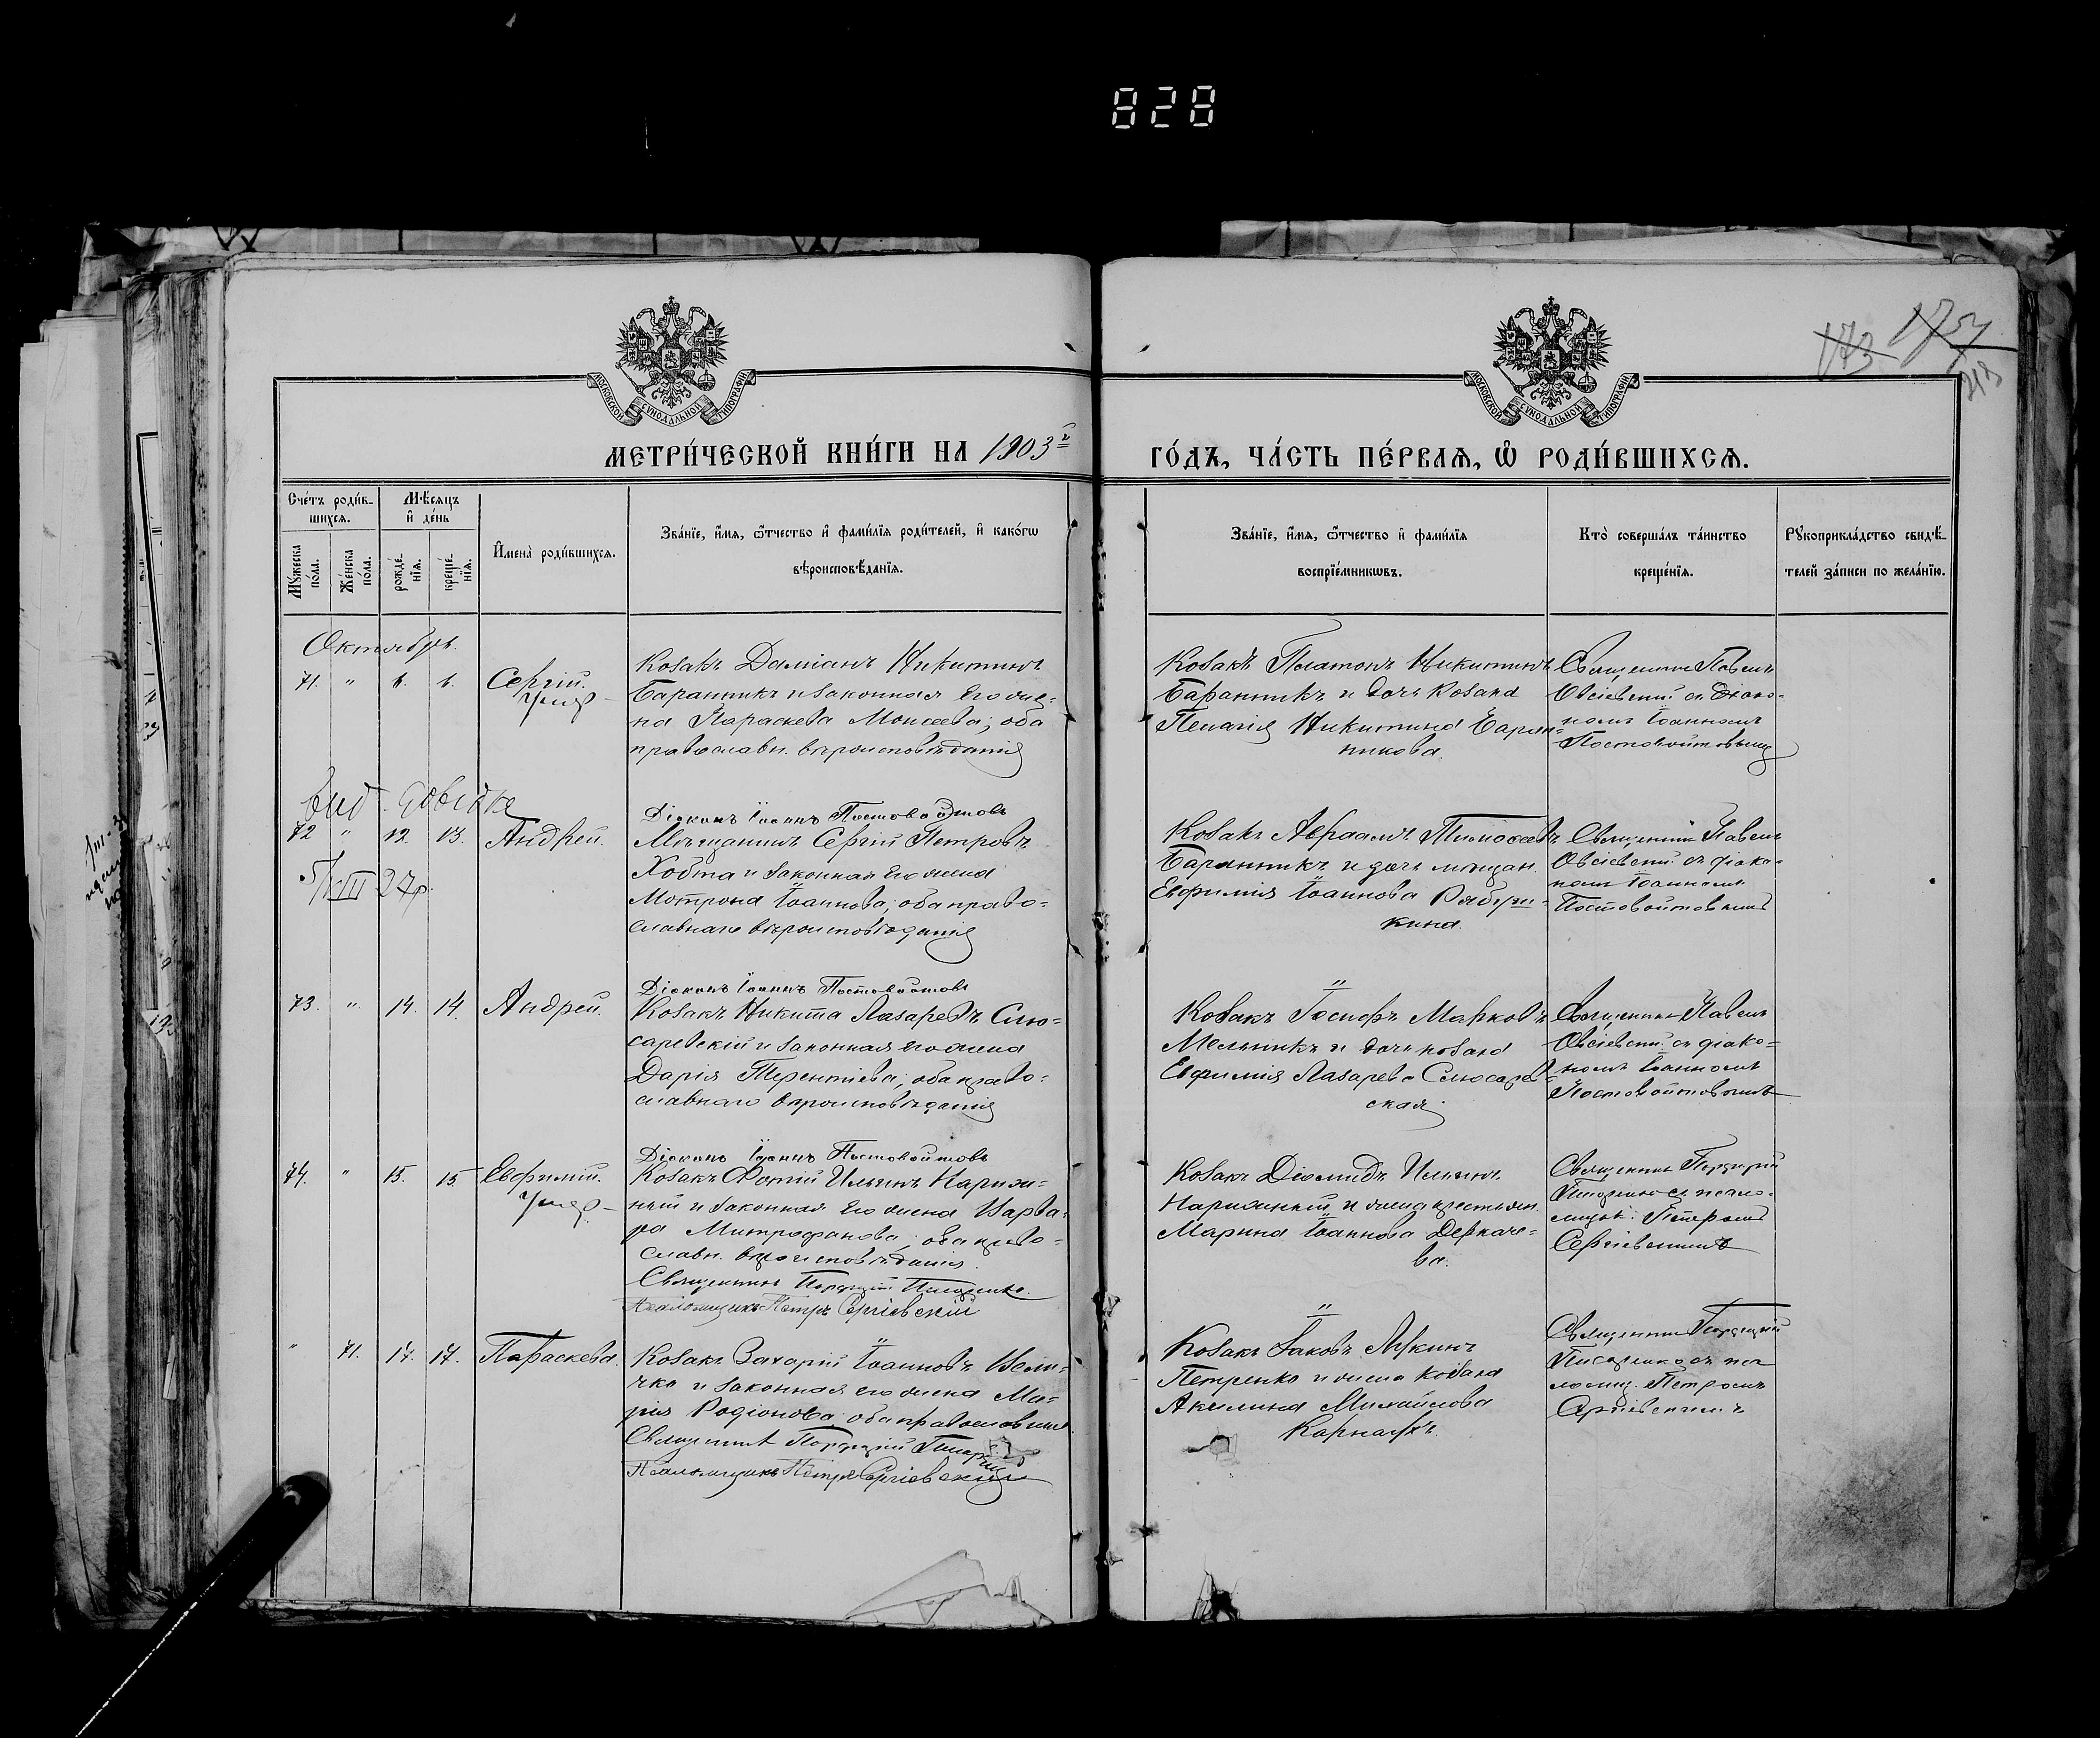 828
173
МОСКОВСКОЙ СѴНОДАЛЬНОЙ ТИПОГРАФІИ
МОСКОВСКОЙ СѴНОДАЛЬНОЙ ТИПОГРАФІИ
МЕТРИ́ЧЕСКОЙ КНИ́ГИ НА 1903 г
ГО́ДЪ, ЧА́СТЬ ПЕ́РВАѦ, Ѡ҆ РОДИ́ВШИХСѦ.
Сче́тъ роди́в-
шихся.
Мѣ́сяцъ
и҆ де́нь
Мꙋ́жеска
по́ла.
Же́нска
по́ла.
рожде́-
нїѧ.
креще́-
нїѧ.
И҆мена̀ роди́вшихся.
Зва́нїе, и҆́мѧ, ѻ҆́тчество и҆ фами́лїѧ роди́телей, и҆ како́гѡ
вѣроисповѣ́данїѧ.
Зва́нїе, и҆́мѧ, ѻ҆́тчество и҆ фами́лїѧ
воспрїе́мникѡвъ.
Кто̀ соверша́лъ та́инство
креще́нїѧ.
Рꙋкоприкла́дство свидѣ́-
телей за́писи по жела́нїю.
Октябрь.
71. " 1. 1. Сергій.
Умер
Козакъ Даміанъ Никитинъ
Баранникъ и законная его же-
на Параскева Моисеева; оба
православн. вѣроисповѣданія
Козакъ Платонъ Никитинъ
Баранникъ и дочь козака
Пелагія Никитина Баран-
никова.
Священникъ Павелъ
Овсіевскій съ діако-
номъ Іоанномъ
Постовойтовымъ
Діаконъ Іоаннъ Постовойтовъ
вид. довідка
5/VIII 27р.
72 " 12. 13. Андрей.
Мѣщанинъ Сергій Петровъ
Хобта и законная его жена
Мотрона Іоаннова; оба право-
славнаго вѣроисповѣданія
Козакъ Авраамъ Тимофеевъ
Баранникъ и дочь мѣщан.
Евфимія Іоаннова
кина.
Священникъ Павелъ
Овсіевскій съ діако-
номъ Іоанномъ
Постовойтовымъ
Діаконъ Іоаннъ Постовойтовъ
73. " 14. 14. Андрей.
Козакъ Никита Лазаревъ Слю-
саревскій и законная его жена
Дарія Терентіева; оба право-
славнаго вѣроисповѣданія
Козакъ Іосифъ Марковъ
Мельникъ и дочь козака
Евфимія Лазарева Слюсарев-
ская
Священникъ Павелъ
Овсіевскій съ діако-
номъ Іоанномъ
Постовойтовымъ
Діаконъ Іоаннъ Постовойтовъ
74. " 15. 15. Евфимій.
Умер
Козакъ Фотій Ильинъ Нариж-
ный и законная его жена Варва-
ра Митрофанова; оба право-
славн. вѣроисповѣданія.
Священникъ Порфирій Писаренко.
Псаломщикъ Петръ Сергіевскій
Козакъ Діомидъ Ильинъ
Нарижный и жена крестьян.
Марина Іоаннова Деркаче-
ва.
Священникъ Порфирій
Писаренко съ псало-
мщик. Петромъ
Сергіевскимъ
" 71. 17. 17. Параскева.
Козакъ Захарій Іоанновъ Вели-
чко и законная его жена Ма-
рія Родіонова; оба православные.
Священникъ Порфирій Писаренко
Псаломщикъ Петръ Сергіевскій
Козакъ Іаковъ
Петренко и жена козака
Акилина Михайлова
Карнаухъ.
Священникъ Порфирій
Писаренко съ пса
ломщ. Петромъ
Сергіевскимъ